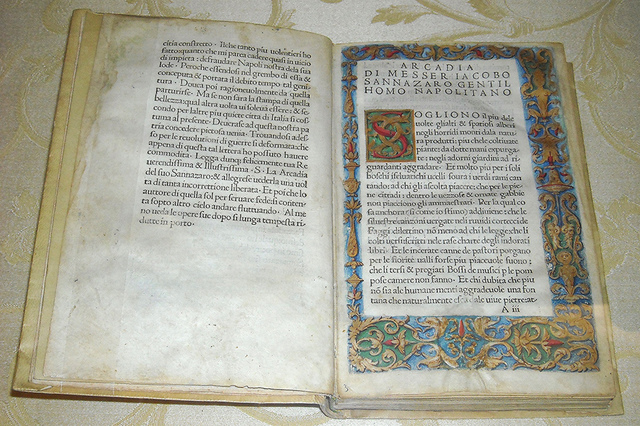 citia constretto . Ilche tanto piu uolentieri ho
fatto quanto che mi parea cadere quasi in uicio
di impieta: defraudare Napoli nostra dela sua
lode . Peroche essendosi nel grembo di essa &
conceputa & portata il debito tempo tal geni
tura . Douea poi ragioneuolmente da quella
parturirse . Ma se non sara la stampa di quella
bellezza: qual altra uolta solensi essere : & se
condo per laltre piu quiete citta di Italia si cos
tuma al presente . Deuerase ad questa nostra pa
tria concedere pietosa uenia . Trouandosi ades
so per le reuolutioni di guerra si deformata: che
appena di questa tal lettera ho possuto hauere
commodita . Legga dunq; felicemente tua Re
uerendissima & Illustrissima . S . La Arcadia
del suo Sannazaro: & allegrese uederla una uol
ta di tanta incorrectione liberata . Et poiche lo
auttore di quella sol per seruare fede si conten
ta sopto altro cielo andare fluttuando . Al me
no le opere sue dopo si lunga tempesta ri
dutte in porto .
ARCADIA
DI MESSER IACOBO
SANNAZARO GENTIL
HOMO NAPOLITANO
SOGLIONO il piu dele
uolte glialti & spatiosi alberi
negli horridi monti dala natu
ra produtti: piu che le coltiuate
piante da dotte mani expurga
te: negli adorni giardini ad ri
guardanti aggradare . Et molto piu per i soli
boschi i seluatichi ucelli soura i uerdi rami can
tando: ad chi gli ascolta piacere: che per le pie
ne cittadi: dentro le uezzose & ornate gabbie
non piacciono gli ammaestrati . Per la qual co
sa anchora (si come io stimo) addiuiene: che le
siluestre canzoni uergate neli ruuidi cortecci de
Faggi dilectino nõ meno ad chi le legge: che li
colti uersi scritti nele rase charte degli indorati
libri . Et le incerate canne de pastori porgano
per le fiorite ualli forse piu piaceuole suono ;
che li tersi & pregiati Bossi de musici p le pom
pose camere non fanno . Et chi dubita che piu
nõ sia ale humane menti aggradeuole una fon
tana che naturalmente esca dale uiue pietre: at
A iii